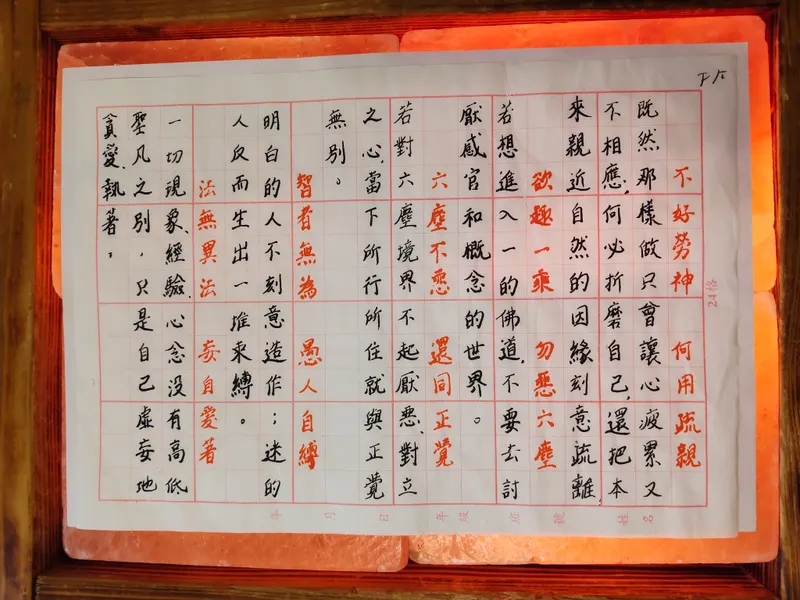 不好勞神 何用疏親
既然那樣做只會讓心疲累又
不相應,何必折磨自己,還把本
來親近自然的因緣刻意疏離。
欲趣一乘 勿惡六塵
若想進入一的佛道,不要去討
厭感官和概念的世界。
六塵不惡 還同正覺
若對六塵境界不起厭惡、對立
之心,當下所行所住就與正覺
無別。
智者無為 愚人自縛
明白的人不刻意造作;迷的
人反而生出一堆來縛。
法無異法 妄自愛著
一切現象、經驗、心念沒有高低
聖凡之別,只是自己虛妄地
貪愛、執著。
24格
年 月 日 年級 班 號 姓名